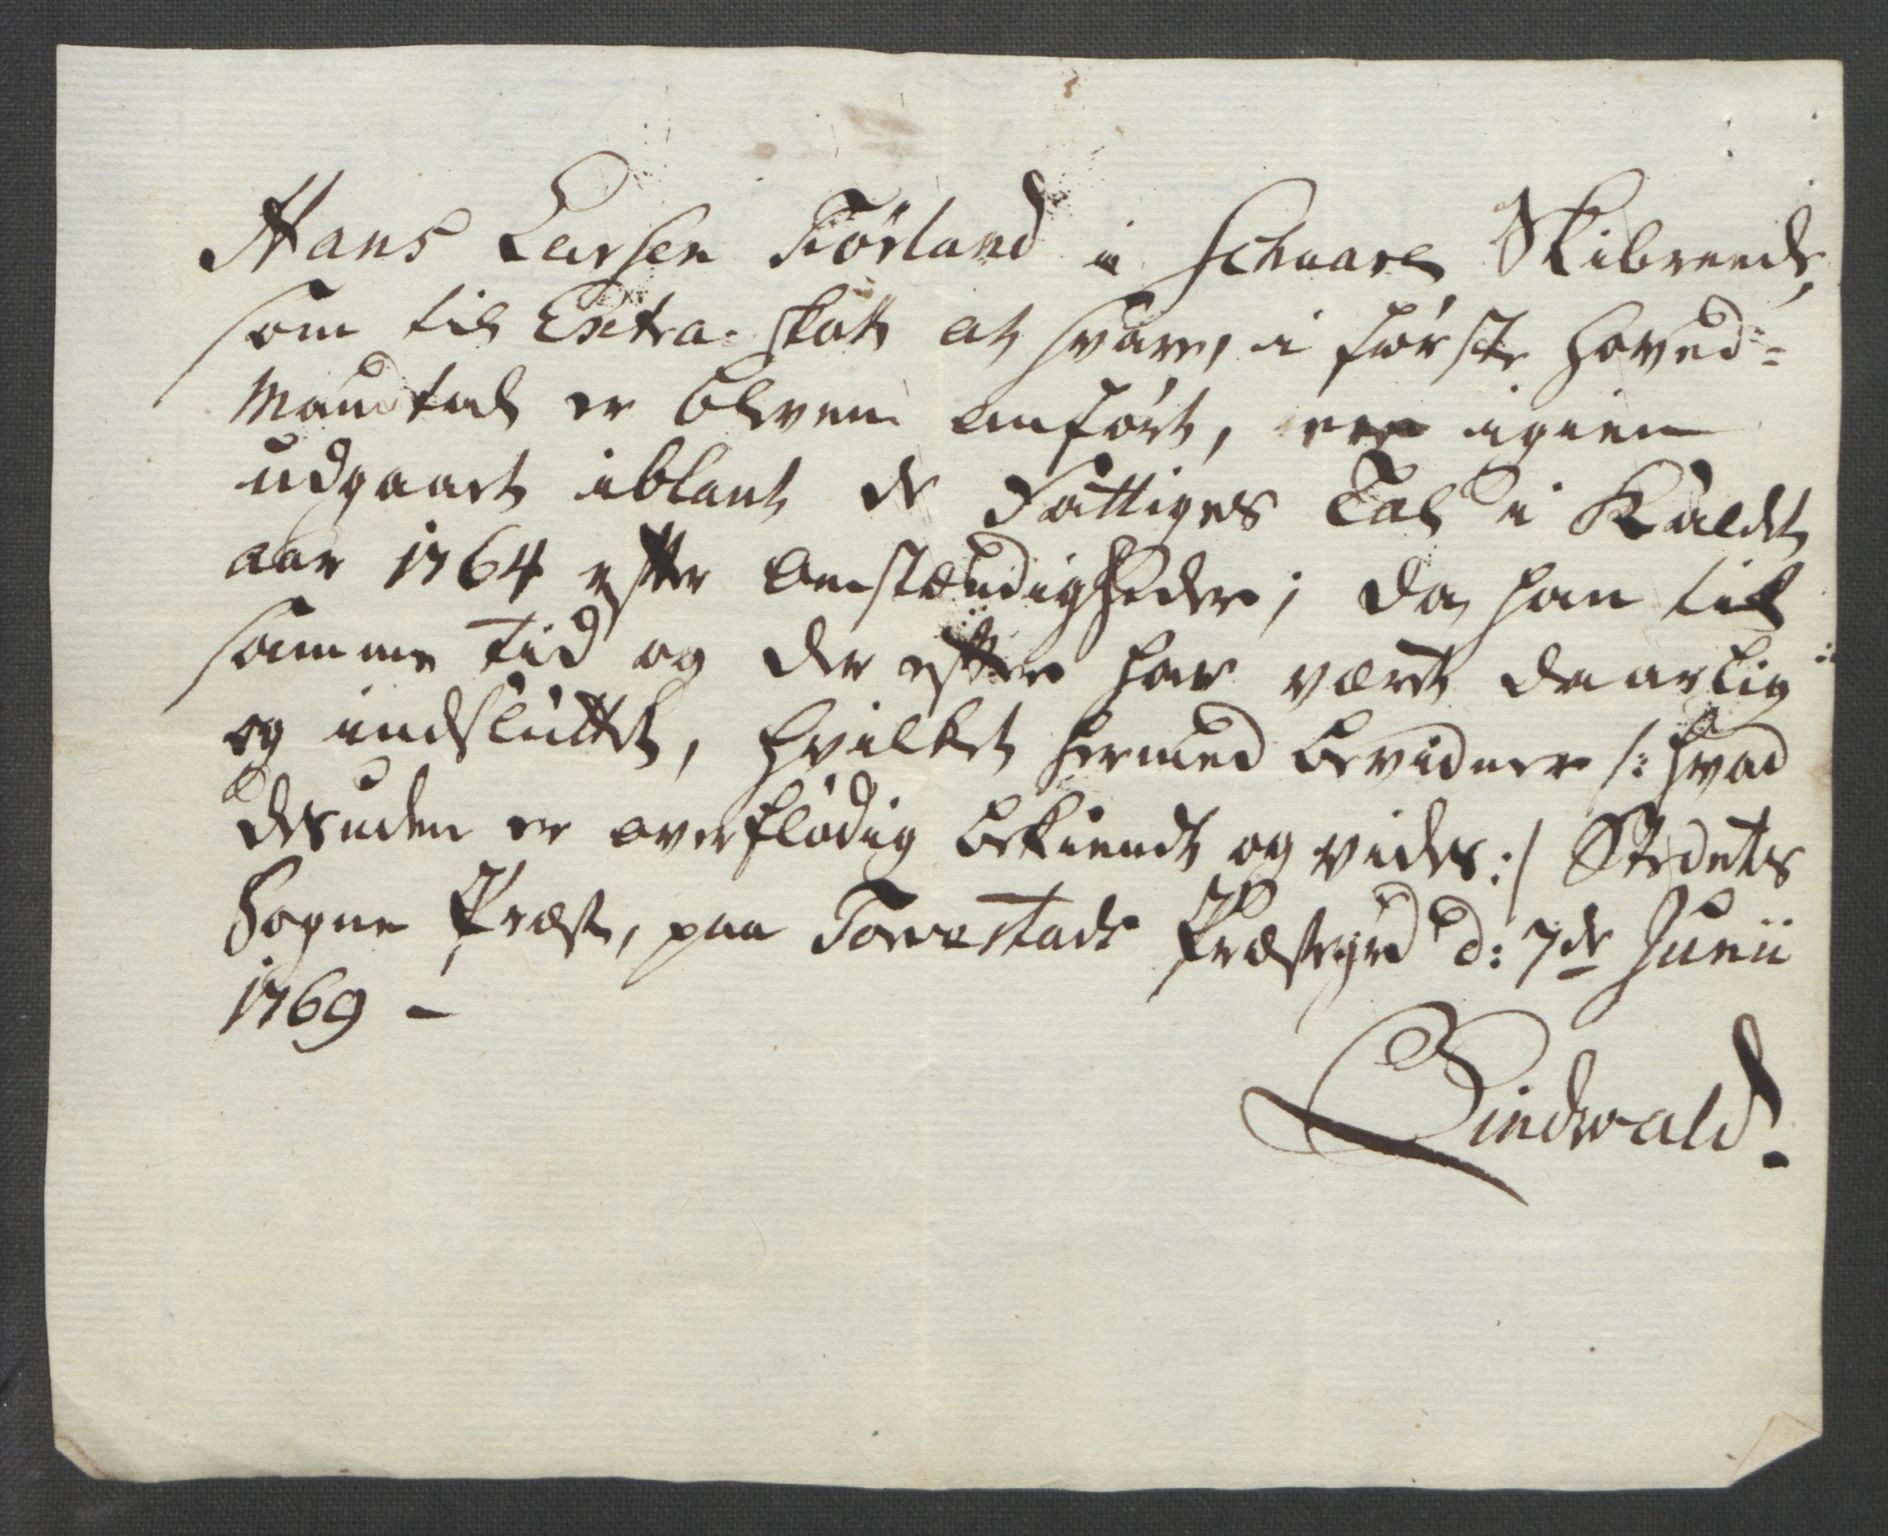 Hans Larsen Førland i Schaare Skibreede,
som til Extra-skatt at svare, i første Hoved-
Mandtal er bleven anført, er igien
udgaaet iblant de Fattiges Tal i Kaldet
aar 1764 efter Omstændigheder; da han til
samme tid og der efter har været daarlig
og indsluttet, hvilket hermed bevidner /: hvad
desuden er overflødig bekiendt og vides :/ Stedets
Sogne Præst, paa Torvestads Præstegrd d: 7de Junii
1769 –
Lindwald.